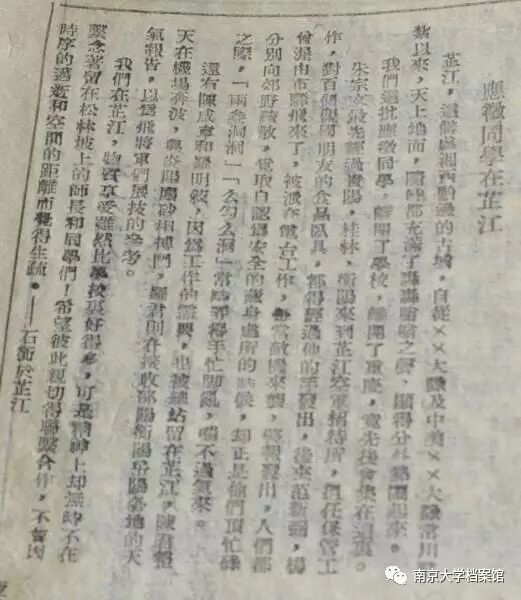 應徵同學在芷江
芷江，這僻處湘西黔邊的古城，自從××大隊及中美××大隊常川
紮以來，天上地面，隨時都充滿了轟轟嗡嗡之聲，顯得分外熱鬧起來。
我們這批應徵同學，離開了學校，離開了重慶，竟先後會集在這裏。
朱宗文最先經過貴陽，桂林，衡陽來到芷江空軍招待所，担任保管工
作，對百個盟國朋友的食品臥具，都得經過他的手發出，後來范新瀾，楊
曾湜由市縣飛來了，被派在電台工作，每當敵機來襲，警報發出，人們都
分別向郊野疏散，覓取自認為安全的藏身處所的時候，却正是他們頂忙碌
之際，「兩叁洞洞」「么勾么洞」常常弄得手忙脚亂，喘不過氣來。
還有陳咸寧和羅明毅，因為工作的需要，也被總站留在芷江，陳君整
天在機場奔波，與炎陽塵砂相搏鬥，羅君則在接收邵陽衡陽岳陽各地的天
氣報告，以為飛將軍們展技的參考。
我們在芷江，物質享受雖然比學校裏好得多，可是精神上却無時不在
繫念著留在松林坡上的師長和同學們！希望彼此親切得聯繫合作，不會因
時序的遞逝和空間的距離而覺得生疏。——石衡於芷江
南京大学档案馆